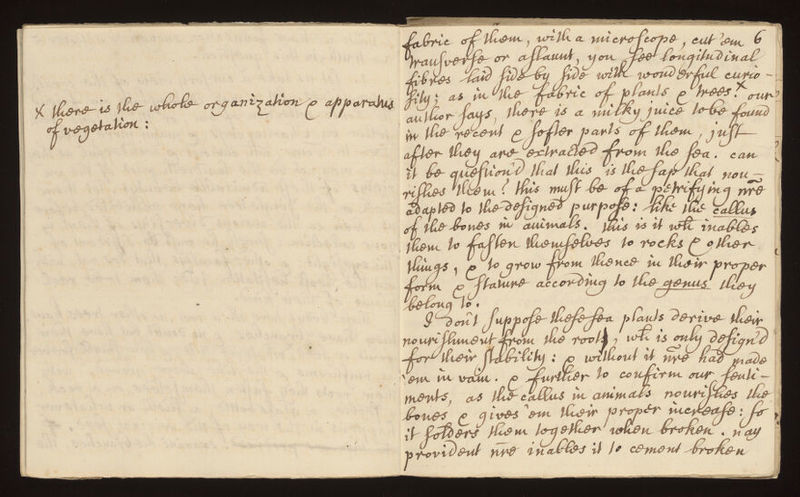 x there is the whole organization & apparatus
of vegetation:
6
fabric of them, with a microscope, cut 'em
transverse or aslaunt, you see longitudinal
fibres laid side by side with wonderful curio-
sity; as in the fabric of plants & trees.x our
author says, there is a milky juice to be found
in the recent & softer parts of them, just
after they are extracted from the sea. can
it be question'd that this is the sap that nou-
rishes them? this must be of a petrifying nr̅e
adapted to the designed purpose: like the callus
of the bones in animals. this is it wh inables
them to fasten themselves to rocks & other
things, & to grow from thence in their proper
form & stature according to the genus they
belong to.
I don't suppose these sea plants derive their
nourishment from the root, wh is only design'd
for their stability: & without it nr̅e had made
'em in vain. & further to confirm our senti-
ments, as the callus in animals nourishes the
bones & gives 'em their proper increase: so
it solders them together when broken. nay
provident nr̅e inables it to cement broken